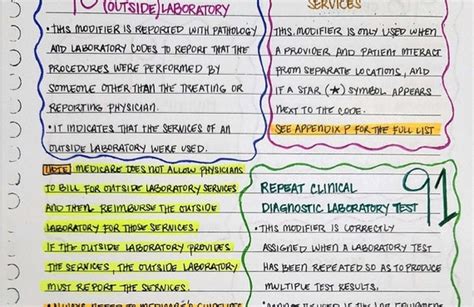 (OUTSIDE) LABORATORY
• THIS MODIFIER IS REPORTED WITH PATHOLOGY
AND LABORATORY CODES TO REPORT THAT THE
PROCEDURES WERE PERFORMED BY
SOMEONE OTHER THAN THE TREATING OR
REPORTING PHYSICIAN.
• IT INDICATES THAT THE SERVICES OF AN
OUTSIDE LABORATORY WERE USED.
SERVICES
THIS MODIFIER IS ONLY USED WHEN
A PROVIDER AND PATIENT INTERACT
FROM SEPARATE LOCATIONS, AND
IF A STAR (★) SYMBOL APPEARS
NEXT TO THE CODE.
SEE APPENDIX P FOR THE FULL LIST
NOTE: MEDICARE DOES NOT ALLOW PHYSICIANS
TO BILL FOR OUTSIDE LABORATORY SERVICES
AND THEN REIMBURSE THE OUTSIDE
LABORATORY FOR THOSE SERVICES.
IF THE OUTSIDE LABORATORY PROVIDES
THE SERVICES, THE OUTSIDE LABORATORY
MUST REPORT THE SERVICES.
• ALWAYS REFER TO MEDICARE'S GUIDELINE
91
REPEAT CLINICAL
DIAGNOSTIC LABORATORY TEST
• THIS MODIFIER IS CORRECTLY
ASSIGNED WHEN A LABORATORY TEST
HAS BEEN REPEATED SO AS TO PRODUCE
MULTIPLE TEST RESULTS.